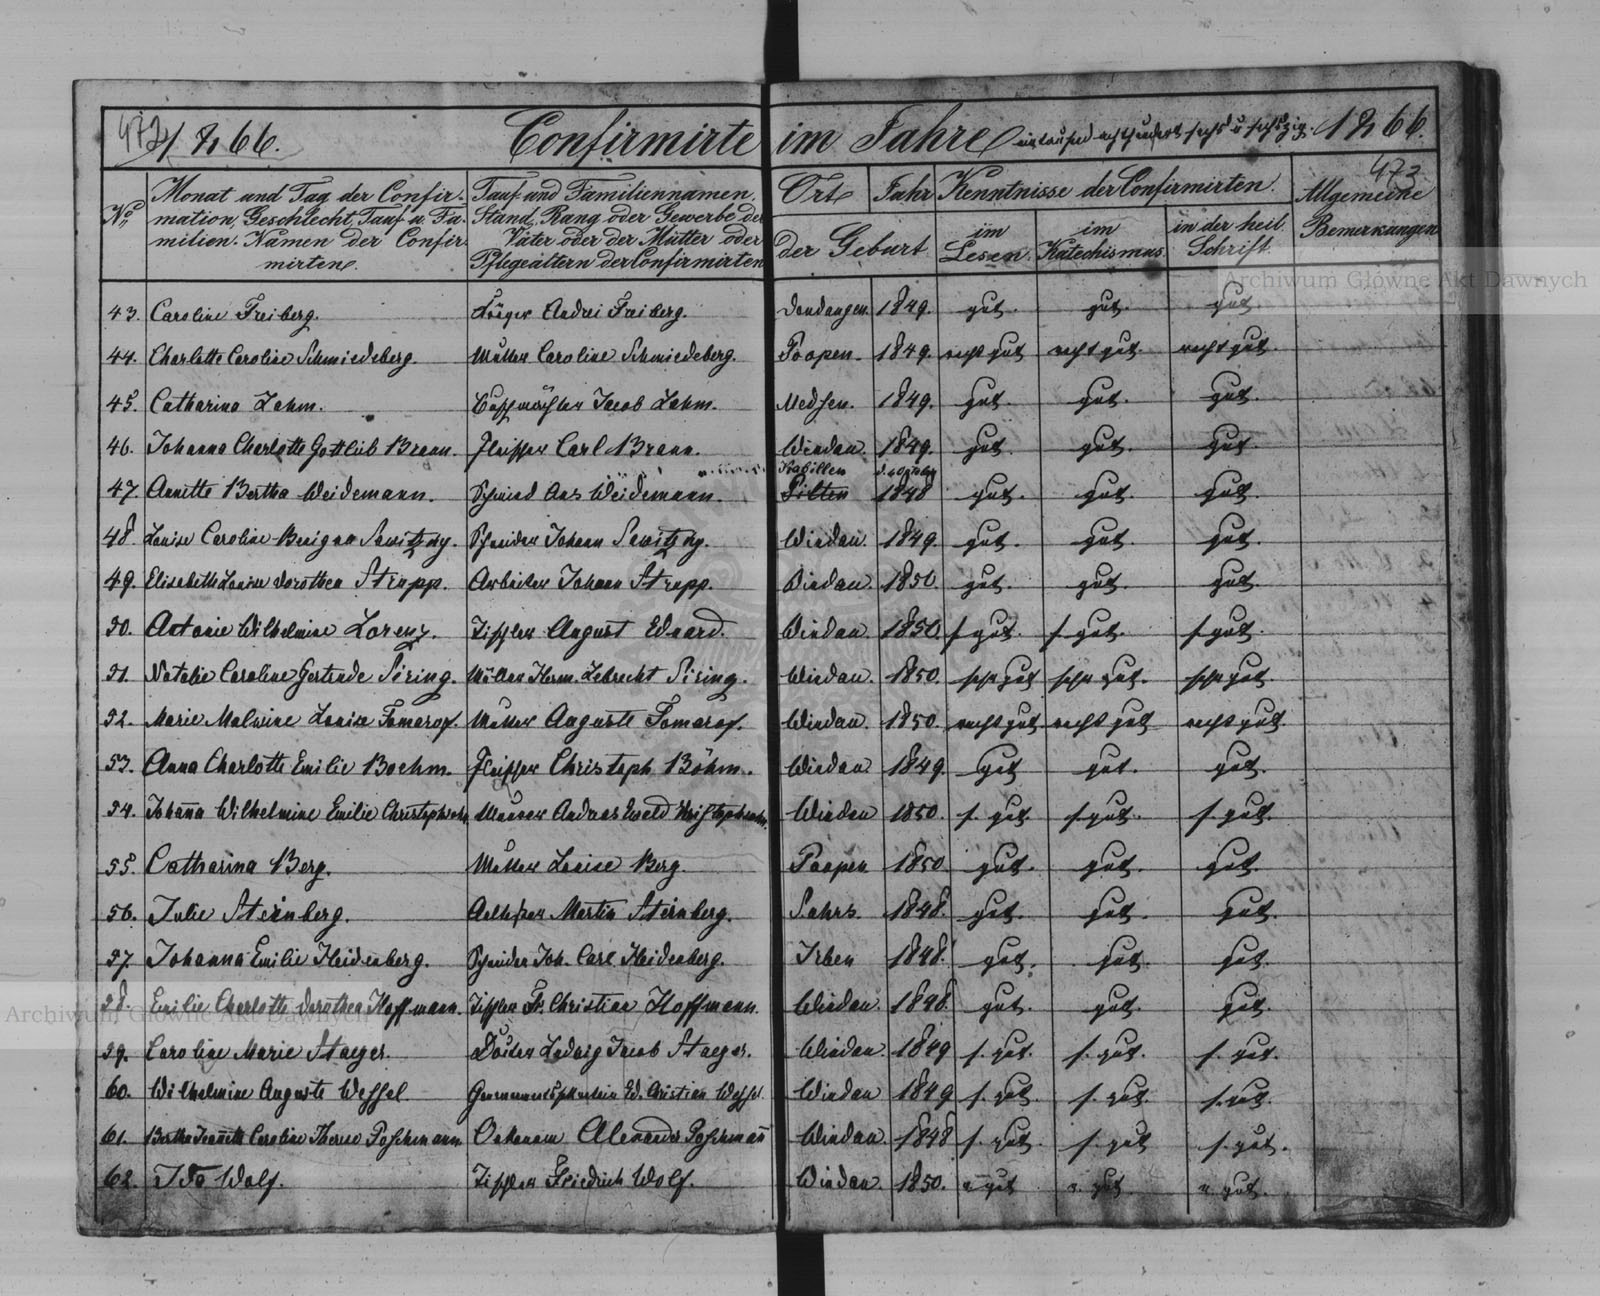 472
1866. Confirmirte im Jahre eintausend achthundert sechs u sechszig. 1866.
473
No Monat und Tag der Confirmation, Geschlecht, Tauf u Familien-Namen der Confirmirten.
Tauf und Familiennamen, Stand, Rang oder Gewerbe der Väter oder der Mütter oder Pflegeältern der Confirmirten
Ort Jahr der Geburt
Kenntnisse der Confirmirten.
im Lesen. im Katechismus. in der heil. Schrift.
Allgemeine Bemerkungen
43. Caroline Freiberg. Andrei Freiberg. Dondangen. 1849. gut. gut. gut.
44. Charlotte Caroline Schmiedeberg. Mutter Caroline Schmiedeberg. Poopen. 1849. recht gut recht gut. recht gut.
45. Catharina Lahm. Buschwächter Jacob Lahm. 1849. gut. gut. gut.
46. Johanna Charlotte Gottlieb Brenn. Fleischer Carl Brenn. Windau. 1849. gut. gut. gut.
47. Annette Bertha Weidemann. Schmied Ans Weidemann. Pilten 1848 gut. gut. gut.
48. Louise Caroline Benigna Sewitzky. Schneider Johann Sewitzky. Windau. 1849. gut. gut. gut.
49. Elisabeth Louise Dorothea Strupp. Arbeiter Johann Strupp. Windau. 1850. gut. gut. gut.
50. Antonie Wilhelmine Lorenz. Tischler August Eduard. Windau. 1850. s. gut. s. gut. s. gut.
51. Natalie Caroline Gertrude Siring. Müller Herm. Lebrecht Siring. Windau. 1850. sehr gut sehr gut. sehr gut.
52. Marie Malwine Louise Tomarof. Mutter Auguste Tomarof. Windau. 1850. recht gut recht gut recht gut.
53. Anna Charlotte Emilie Boehm. Fleischer Christoph Böhm. Windau 1849. gut gut. gut.
54. Johanna Wilhelmine Emilie Maurer Andreas Ewald Windau 1850. s. gut. s. gut. s. gut.
55. Catharina Berg. Mutter Louise Berg. Poopen 1850. gut. gut. gut.
56. Julie Steinberg. Martin Steinberg. Sahrs. 1848. gut. gut. gut.
57. Johanna Emilie Heidenberg. Schneider Joh. Carl Heidenberg. Irben 1848. gut. gut. gut.
58. Emilie Charlotte Dorothea Hoffmann. Tischler Fr. Christian Hoffmann. Windau. 1848. gut. gut. gut.
59. Caroline Marie Staeger. Ludwig Jacob Staeger. Windau. 1849 s. gut. s. gut. s. gut.
60. Wilhelmine Auguste Wessel. Ed. Christian Wessel. Windau 1849 s. gut. s. gut. s. gut.
61. Bertha Jeannette Caroline Therese Poschmann Oekonom Alexander Poschmañ Windau. 1848 s. gut. s. gut s. gut.
62. Ida Wolf. Tischler Friedrich Wolf. Windau. 1850. gut gut. gut.
Archiwum Główne Akt Dawnych
Archiwum Główne Akt Dawnych